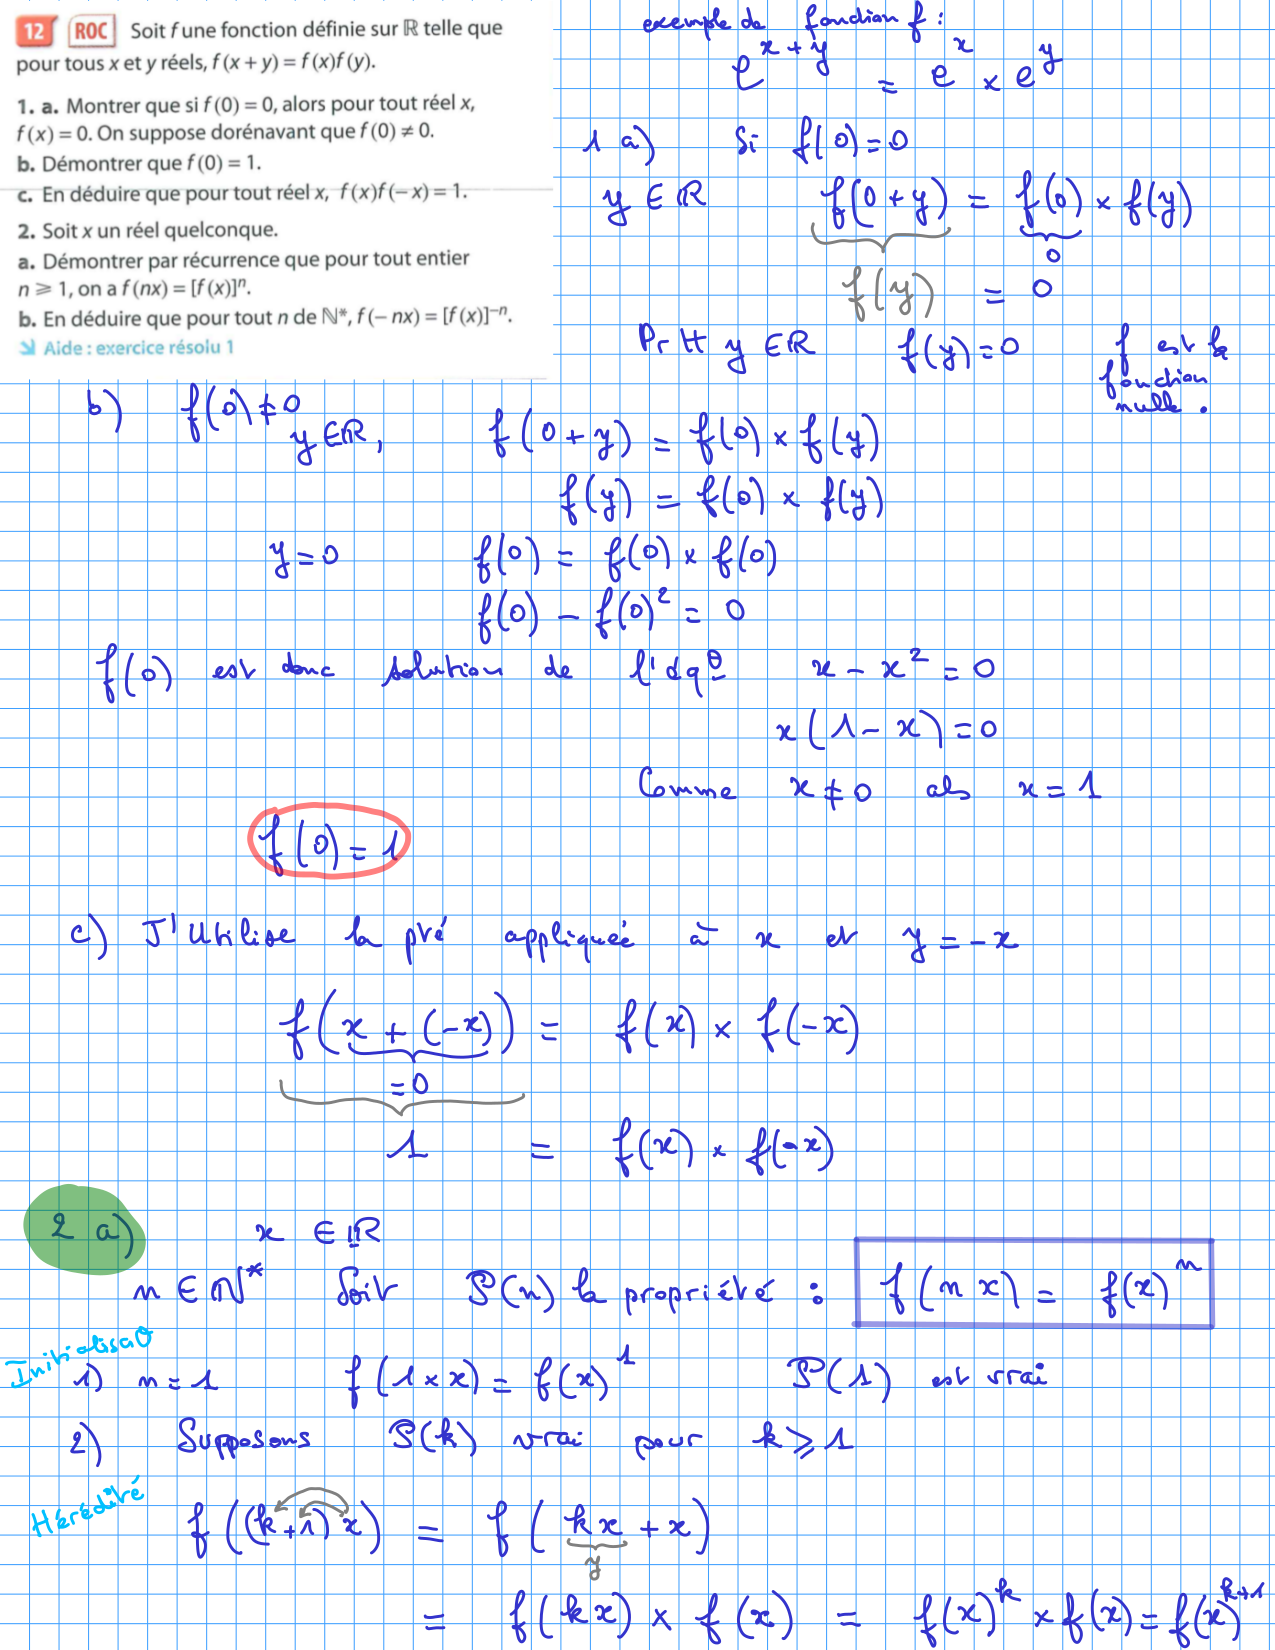 12 ROC Soit f une fonction définie sur ℝ telle que
pour tous x et y réels, f(x + y) = f(x)f(y).
1. a. Montrer que si f(0) = 0, alors pour tout réel x,
f(x) = 0. On suppose dorénavant que f(0) ≠ 0.
b. Démontrer que f(0) = 1.
c. En déduire que pour tout réel x, f(x)f(−x) = 1.
2. Soit x un réel quelconque.
a. Démontrer par récurrence que pour tout entier
n ⩾ 1, on a f(nx) = [f(x)]ⁿ.
b. En déduire que pour tout n de ℕ*, f(−nx) = [f(x)]⁻ⁿ.
Aide : exercice résolu 1
exemple de fonction f :
e^{x+y} = e^x × e^y
1 a) Si f(0)=0
y ∈ ℝ f(0+y) = f(0) × f(y)
0
f(y) = 0
Pr tt y ∈ ℝ f(y)=0 f est la
fonction
nulle.
b) f(0) ≠ 0
y ∈ ℝ, f(0+y) = f(0) × f(y)
f(y) = f(0) × f(y)
y=0 f(0) = f(0) × f(0)
f(0) − f(0)² = 0
f(0) est donc solution de l'éqº x − x² = 0
x(1−x)=0
Comme x ≠ 0 als x = 1
f(0) = 1
c) J'utilise la pté appliquée à x et y = −x
f(x + (−x)) = f(x) × f(−x)
=0
1 = f(x) × f(−x)
2 a) x ∈ ℝ
n ∈ ℕ* Soit P(n) la propriété : f(n x) = f(x)^n
Initialisaº
1) n = 1 f(1×x) = f(x)^1 P(1) est vrai
2) Supposons P(k) vrai pour k ⩾ 1
Hérédité
f((k+1)x) = f(kx + x)
y
= f(kx) × f(x) = f(x)^k × f(x) = f(x)^{k+1}